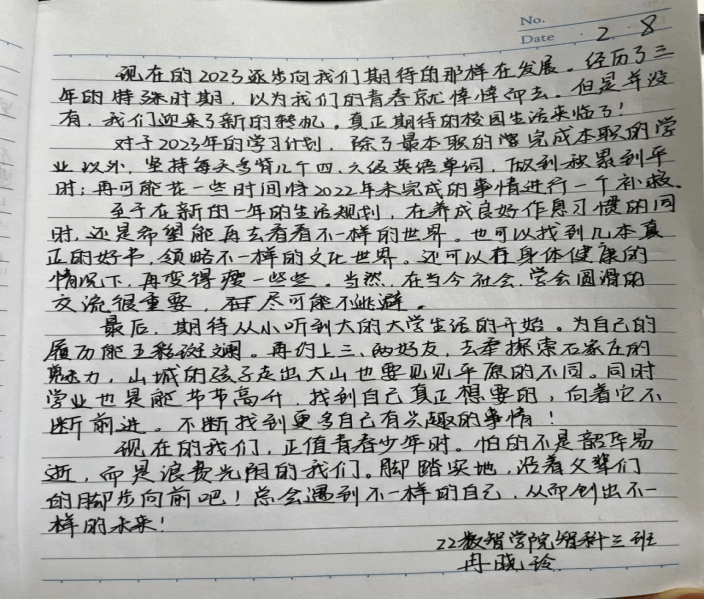 No.
Date 2.8
现在的2023逐步向我们期待的那样在发展。经历了三
年的特殊时期，以为我们的青春就悻悻而去。但是并没
有，我们迎来了新的转机。真正期待的校园生活来临了！
对于2023年的学习计划，除了最本职的完成本职的学
业以外，坚持每天多背几个四、六级英语单词，做到积累到平
时；再可能花一些时间将2022年未完成的事情进行一个补救。
至于在新的一年的生活规划，在养成良好作息习惯的同
时，还是希望能再去看看不一样的世界。也可以找到几本真
正的好书，领略不一样的文化世界。还可以在身体健康的
情况下，再变得瘦一些些。当然，在当今社会，学会圆滑的
交流很重要，尽可能不逃避。
最后，期待从小听到大的大学生活的开始。为自己的
履历能五彩斑斓。再约上三、两好友，去牵探索石家庄的
魅力，山城的孩子走出大山也要见见平原的不同。同时
学业也是能节节高升，找到自己真正想要的，向着它不
断前进。不断找到更多自己有兴趣的事情！
现在的我们，正值青春少年时。怕的不是韶华易
逝，而是浪费光阴的我们。脚踏实地，沿着父辈们
的脚步向前吧！总会遇到不一样的自己，从而创出不一
样的未来！
22数智学院智科三班
冉晓玲